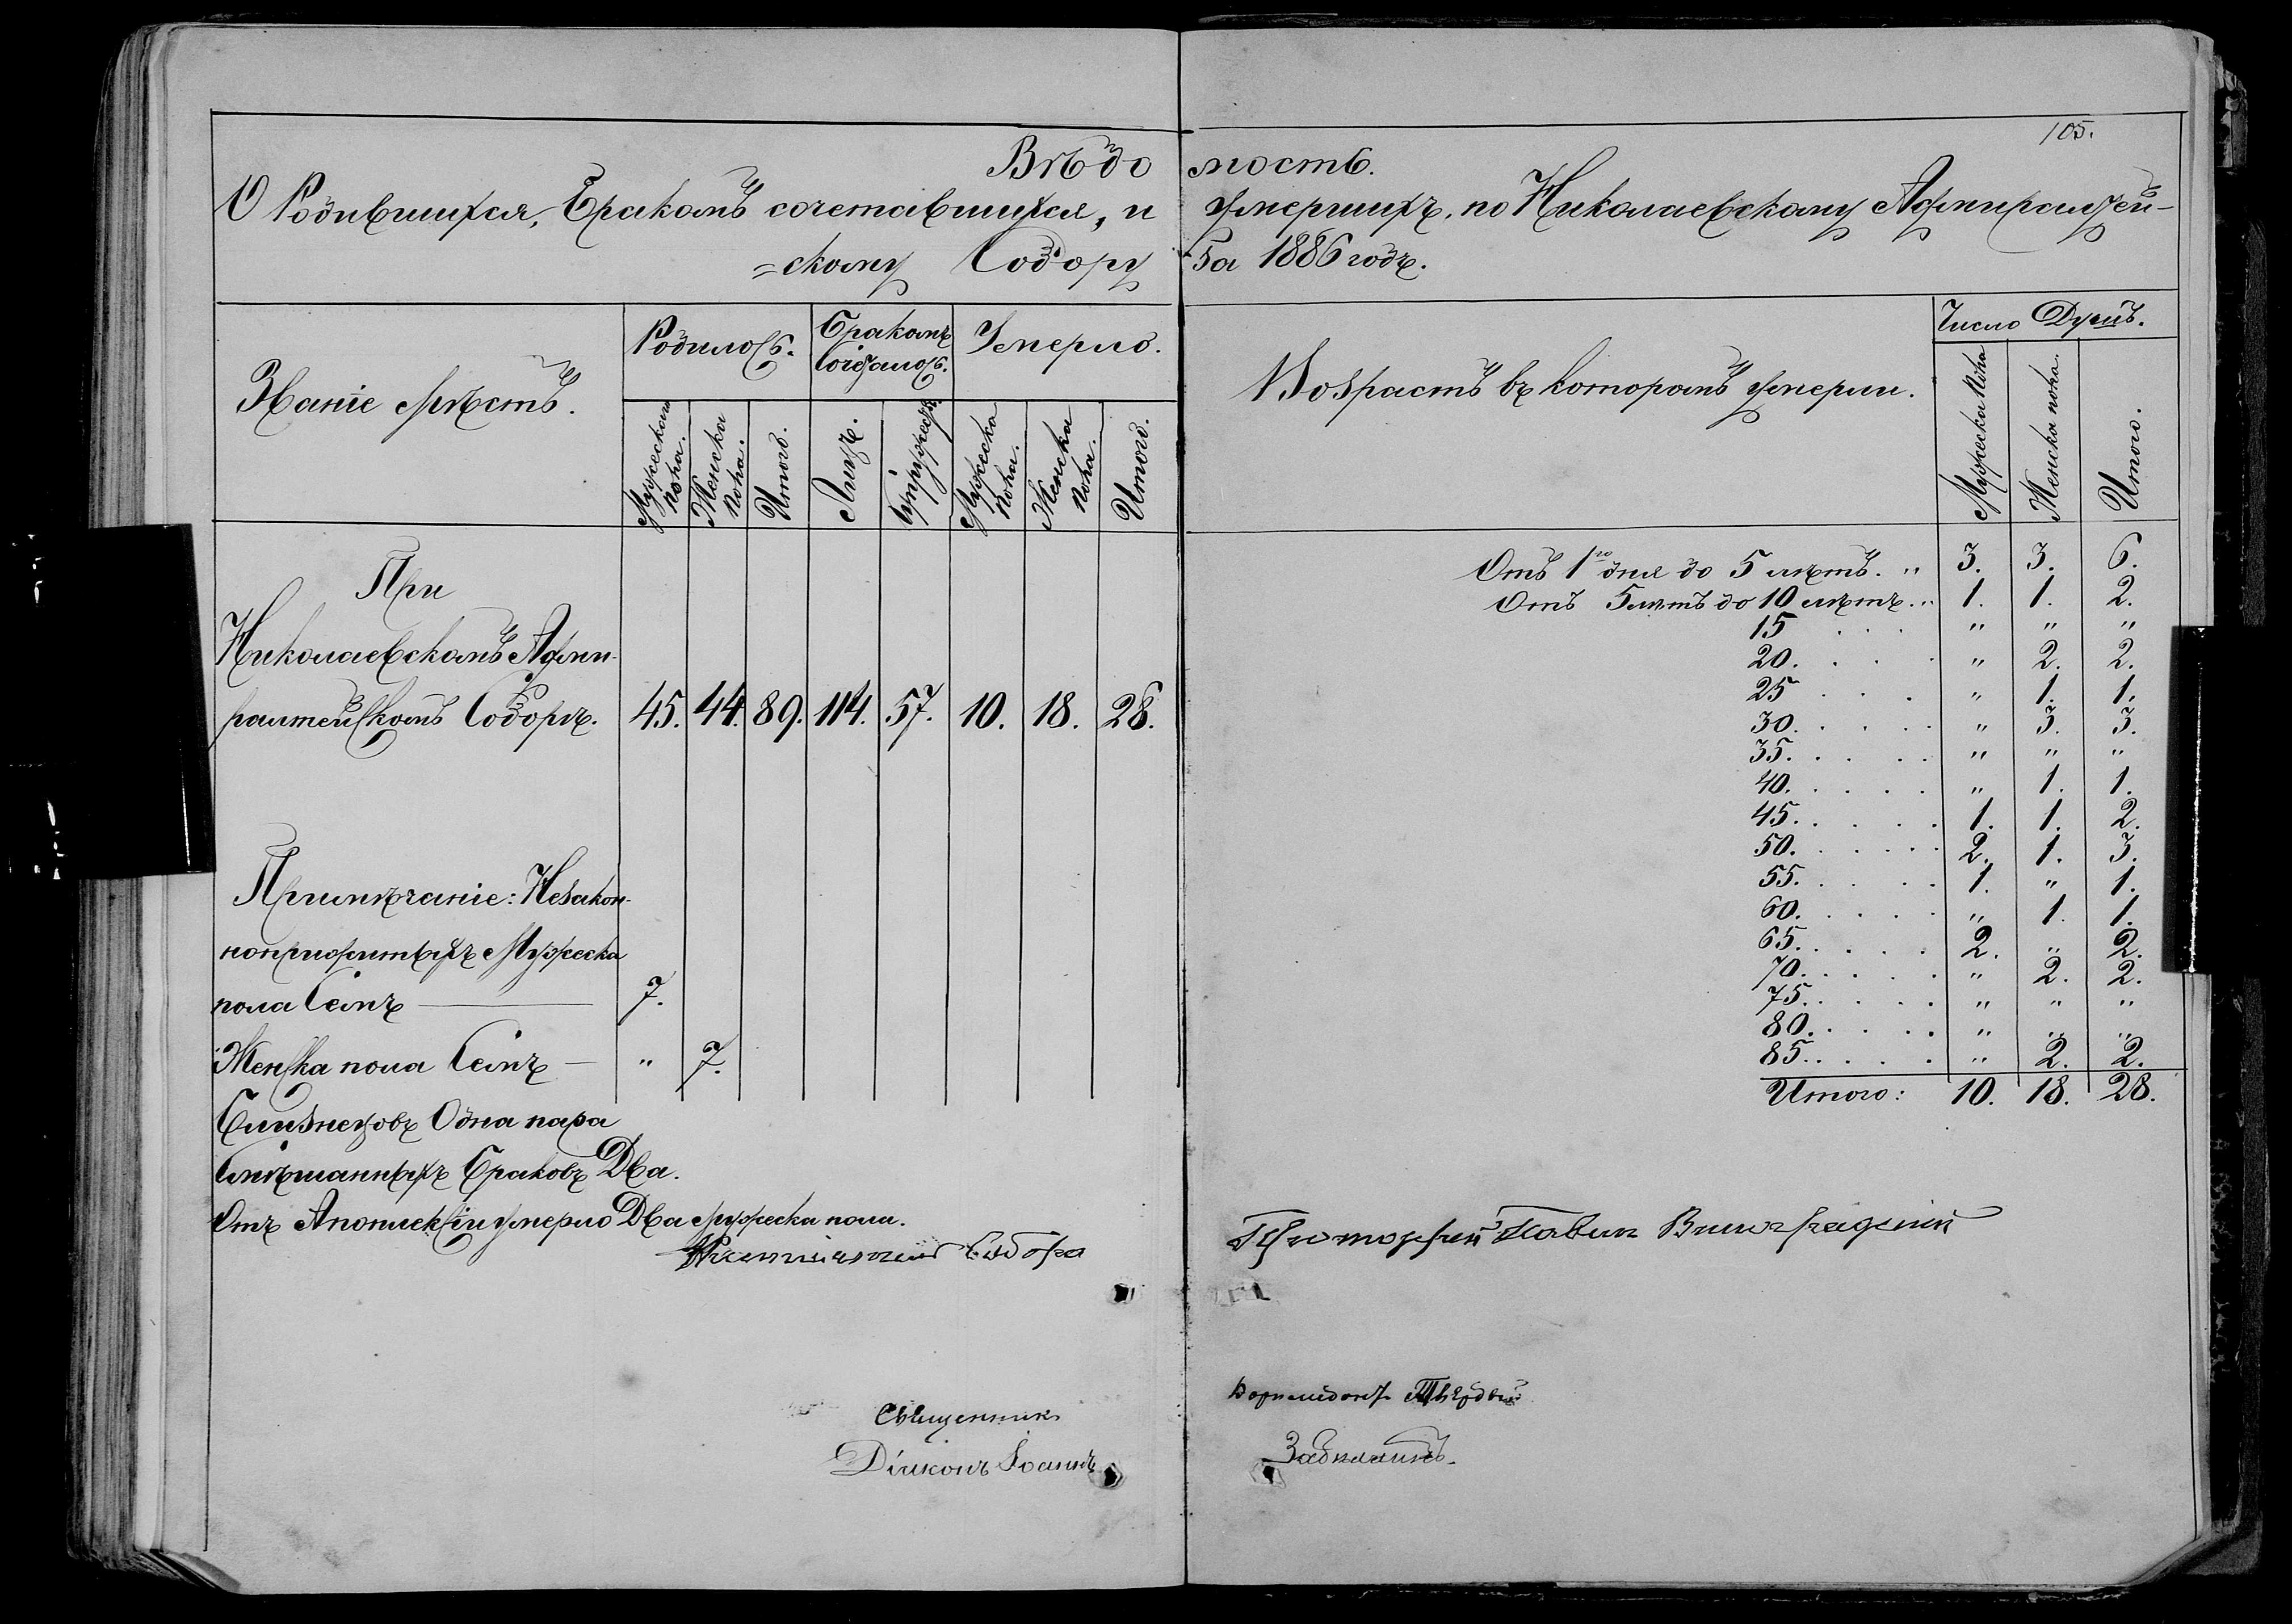 105.
Вѣдомость.
О Родившихся, Бракомъ сочетавшихся, и умершихъ, по Николаевскому Адмиралтей-
=скому Собору за 1886 годъ.
Званіе мѣстъ.
Родилось.
Бракомъ Сочеталось.
Умерло.
Мужескаго пола.
Женска пола.
Итого.
Лицъ.
Супружествъ.
Мужеска пола.
Женска пола.
Итого.
При
Николаевскомъ Адми-
ралтейскомъ Соборѣ. 45. 44. 89. 114. 57. 10. 18. 28.
Примѣчаніе: Незакон-
норожденныхъ Мужеска
пола Семь — 7.
Женска пола Семь — " 7.
Близнецовъ Одна пара
Смѣшанныхъ Браковъ Два.
Отъ Апоплексіи умерло Два мужеска пола.
Возрастъ въ которомъ умерли.
Число Душъ.
Мужеска пола
Женска пола.
Итого.
Отъ 1го дня до 5 лѣтъ. " 3. 3. 6.
Отъ 5 лѣтъ до 10 лѣтъ. " 1. 1. 2.
15 . . . " " "
20. . . . " 2. 2.
25 . . . " 1. 1.
30. . . . " 3. 3.
35. . . . . " " "
40. . . . . " 1. 1.
45. . . . . 1. 1. 2.
50. . . . . 2. 1. 3.
55. . . . . 1. " 1.
60. . . . . " 1. 1.
65. . . . . 2. " 2.
70. . . . . " 2. 2.
75. . . . . " " "
80. . . . . " " "
85. . . . . " 2. 2.
Итого: 10. 18. 28.
Собора Протоіерей Павелъ Виноградскій
Священникъ Твердый
Діаконъ Іоаннъ